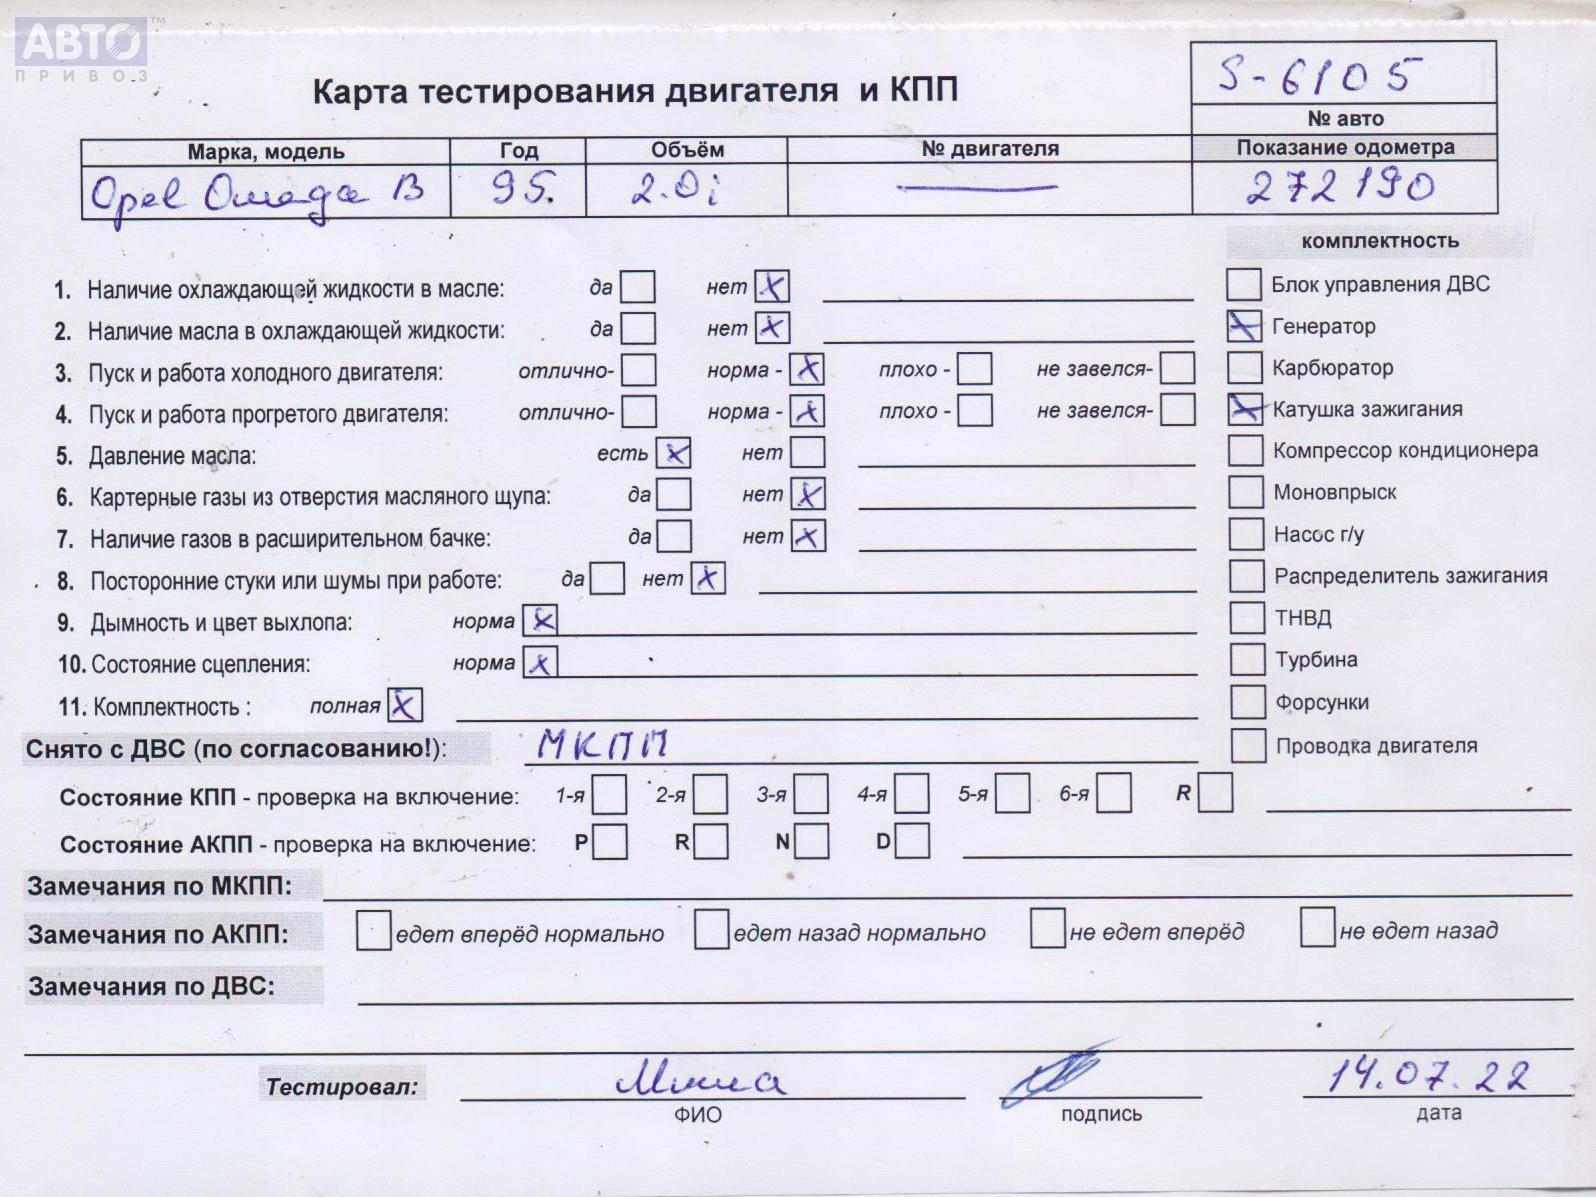 АВТО ™
ПРИВОЗ
S-6105
Карта тестирования двигателя и КПП
№ авто
Марка, модель Год Объём № двигателя Показание одометра
Opel Омега B 95. 2.0i — 272190
комплектность
1. Наличие охлаждающей жидкости в масле: да нет X Блок управления ДВС
2. Наличие масла в охлаждающей жидкости: да нет X X Генератор
3. Пуск и работа холодного двигателя: отлично- норма - X плохо - не завелся- Карбюратор
4. Пуск и работа прогретого двигателя: отлично- норма - X плохо - не завелся- X Катушка зажигания
5. Давление масла: есть X нет Компрессор кондиционера
6. Картерные газы из отверстия масляного щупа: да нет X Моновпрыск
7. Наличие газов в расширительном бачке: да нет X Насос г/у
8. Посторонние стуки или шумы при работе: да нет X Распределитель зажигания
9. Дымность и цвет выхлопа: норма X ТНВД
10. Состояние сцепления: норма X Турбина
11. Комплектность : полная X Форсунки
Снято с ДВС (по согласованию!): МКПП Проводка двигателя
Состояние КПП - проверка на включение: 1-я 2-я 3-я 4-я 5-я 6-я R
Состояние АКПП - проверка на включение: P R N D
Замечания по МКПП:
Замечания по АКПП: едет вперёд нормально едет назад нормально не едет вперёд не едет назад
Замечания по ДВС:
Тестировал: 14.07.22
ФИО подпись дата